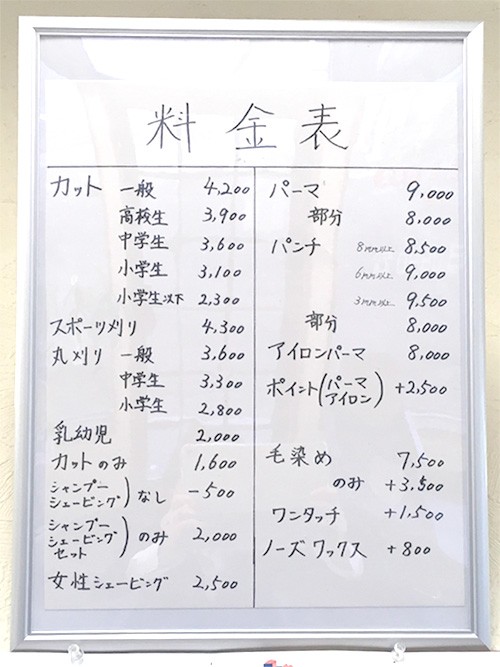 料金表
カット 一般 4,200
高校生 3,900
中学生 3,600
小学生 3,100
小学生以下 2,300
スポーツ刈り 4,300
丸刈り 一般 3,600
中学生 3,300
小学生 2,800
乳幼児 2,000
カットのみ 1,600
シャンプー
シェービング)なし -500
シャンプー
シェービング
セット)のみ 2,000
女性シェービング 2,500
パーマ 9,000
部分 8,000
パンチ 8mm以上 8,500
6mm以上 9,000
3mm以上 9,500
部分 8,000
アイロンパーマ 8,000
ポイント(パーマ
アイロン) +2,500
毛染め 7,500
のみ +3,500
ワンタッチ +1,500
ノーズワックス +800